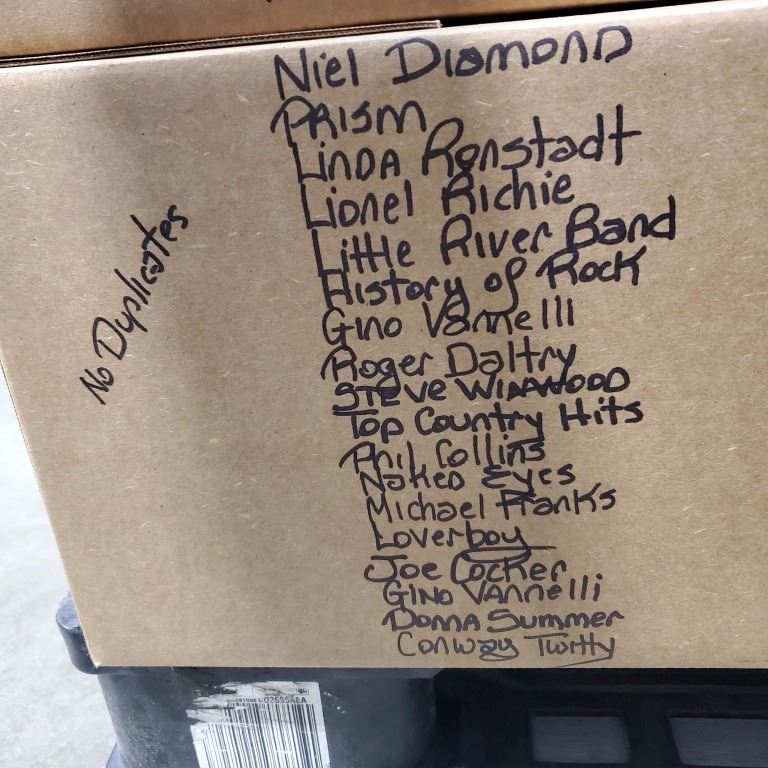 Niel Diamond
Prism
Linda Ronstadt
Lionel Richie
Little River Band
History of Rock
Gino Vannelli
Roger Daltry
Steve Winwood
Top Country Hits
Phil Collins
Naked Eyes
Michael Franks
Loverboy
Joe Cocker
Gino Vannelli
Donna Summer
Conway Twitty
No Duplicates